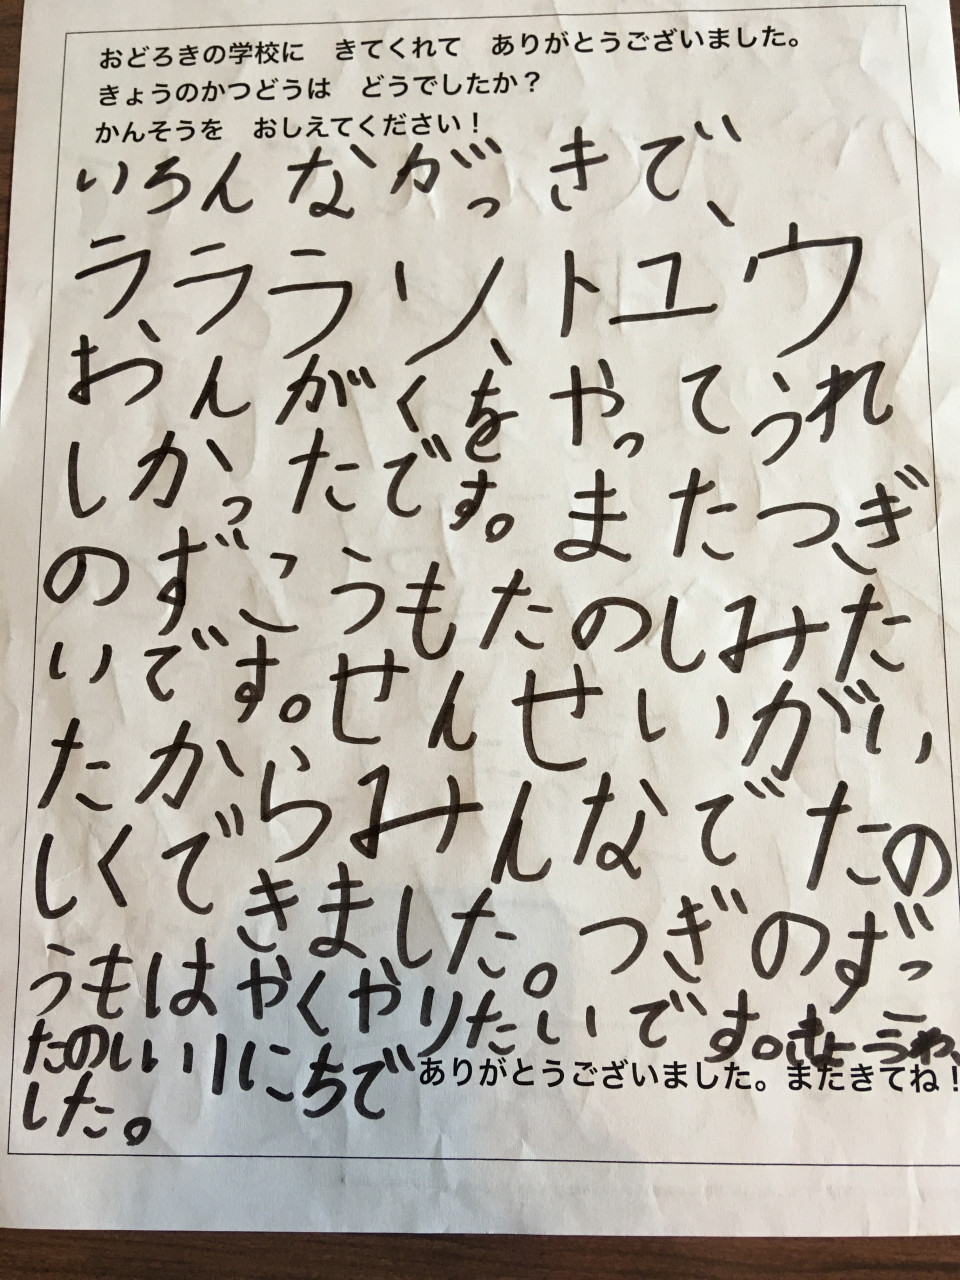 おどろきの学校に　きてくれて　ありがとうございました。
きょうのかつどうは　どうでしたか？
かんそうを　おしえてください！
いろんながっきで、
ラ、ララソ、トユウ
おんがくを、やってうれ
しかったです。またつぎ
のずこうもたのしみた
いです。せんせいがい
たからみんなでたの
しくできました。つぎのずこ
うもはやくやりたいです。きょうわ、
たのしいいちにちで
した。
ありがとうございました。またきてね！